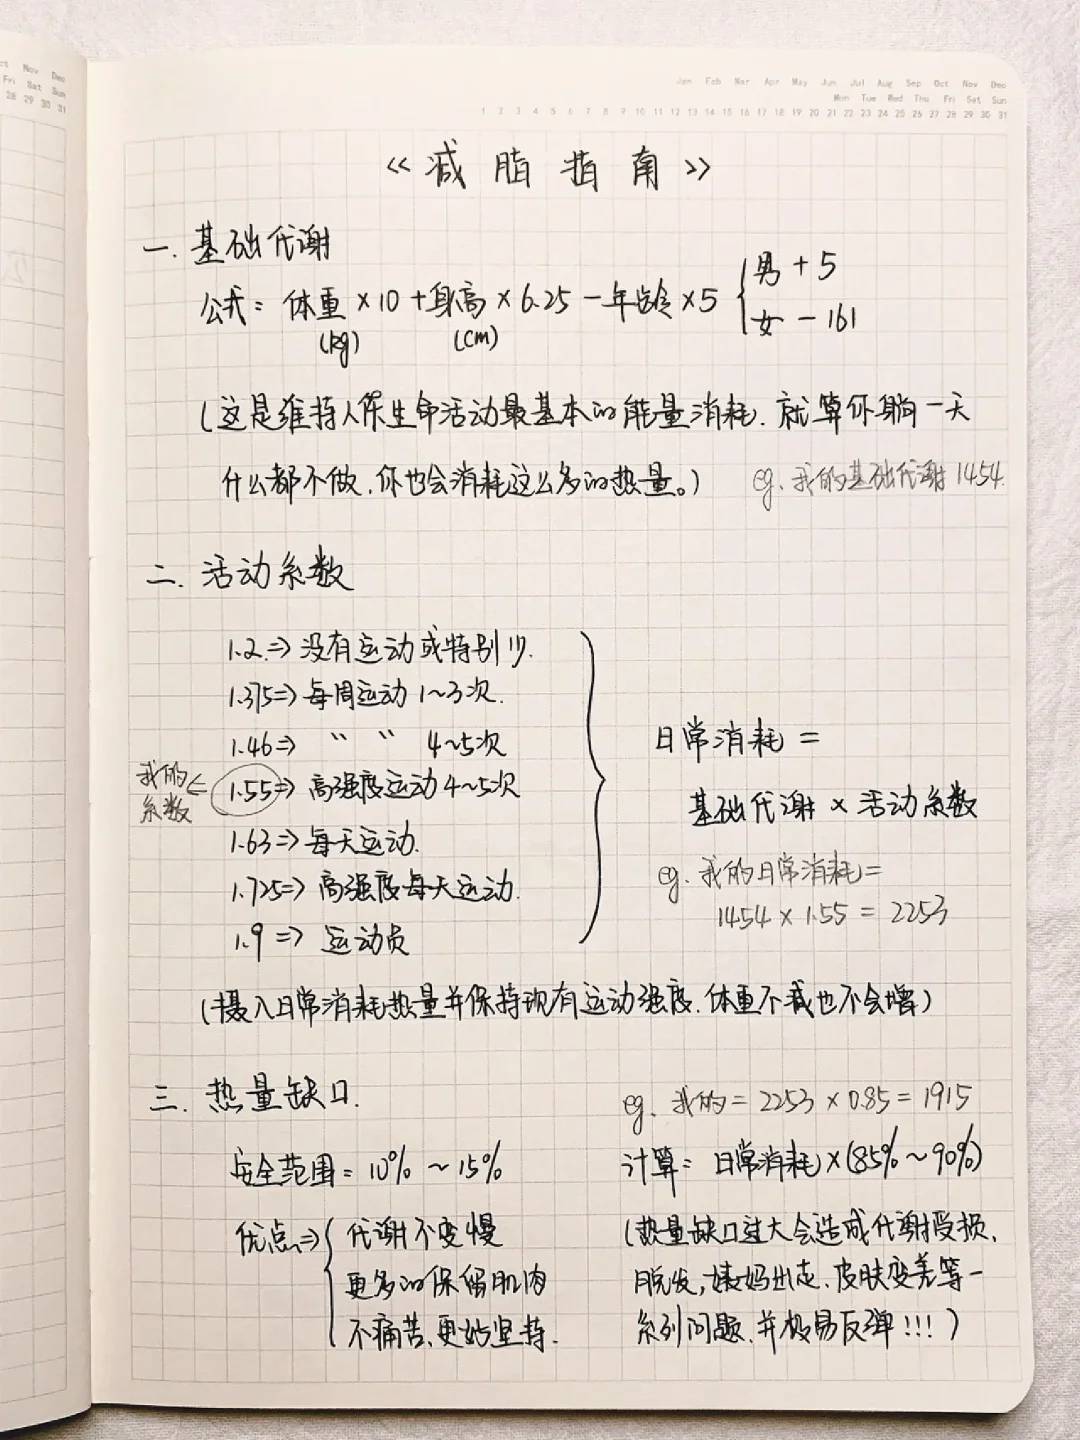 ct Nov Dec
Fri Sat Sun
28 29 30 31
Jan Feb Mar Apr May Jun Jul Aug Sep Oct Nov Dec
Mon Tue Wed Thu Fri Sat Sun
1 2 3 4 5 6 7 8 9 10 11 12 13 14 15 16 17 18 19 20 21 22 23 24 25 26 27 28 29 30 31
《减脂指南》
一. 基础代谢
公式: 体重×10+身高×6.25-年龄×5 { 男+5
女-161
(kg) (cm)
(这是维持人体生命活动最基本的能量消耗.就算你躺一天
什么都不做.你也会消耗这么多的热量。)
eg. 我的基础代谢1454.
二. 活动系数
1.2=>没有运动或特别少.
1.375=>每周运动1~3次.
1.46=> " " 4~5次
1.55=>高强度运动4~5次
我的<=
系数
1.63=>每天运动.
1.725=>高强度每天运动.
1.9=>运动员
日常消耗=
基础代谢×活动系数
eg. 我的日常消耗=
1454×1.55=2253
(摄入日常消耗热量并保持现有运动强度.体重不减也不会增)
三. 热量缺口.
安全范围=10%~15%
优点=>{ 代谢不变慢
更多的保留肌肉
不痛苦、更好坚持.
eg. 我的=2253×0.85=1915
计算=日常消耗×(85%~90%)
(热量缺口过大会造成代谢受损、
脱发,姨妈出走、皮肤变差等一
系列问题.并极易反弹!!!)